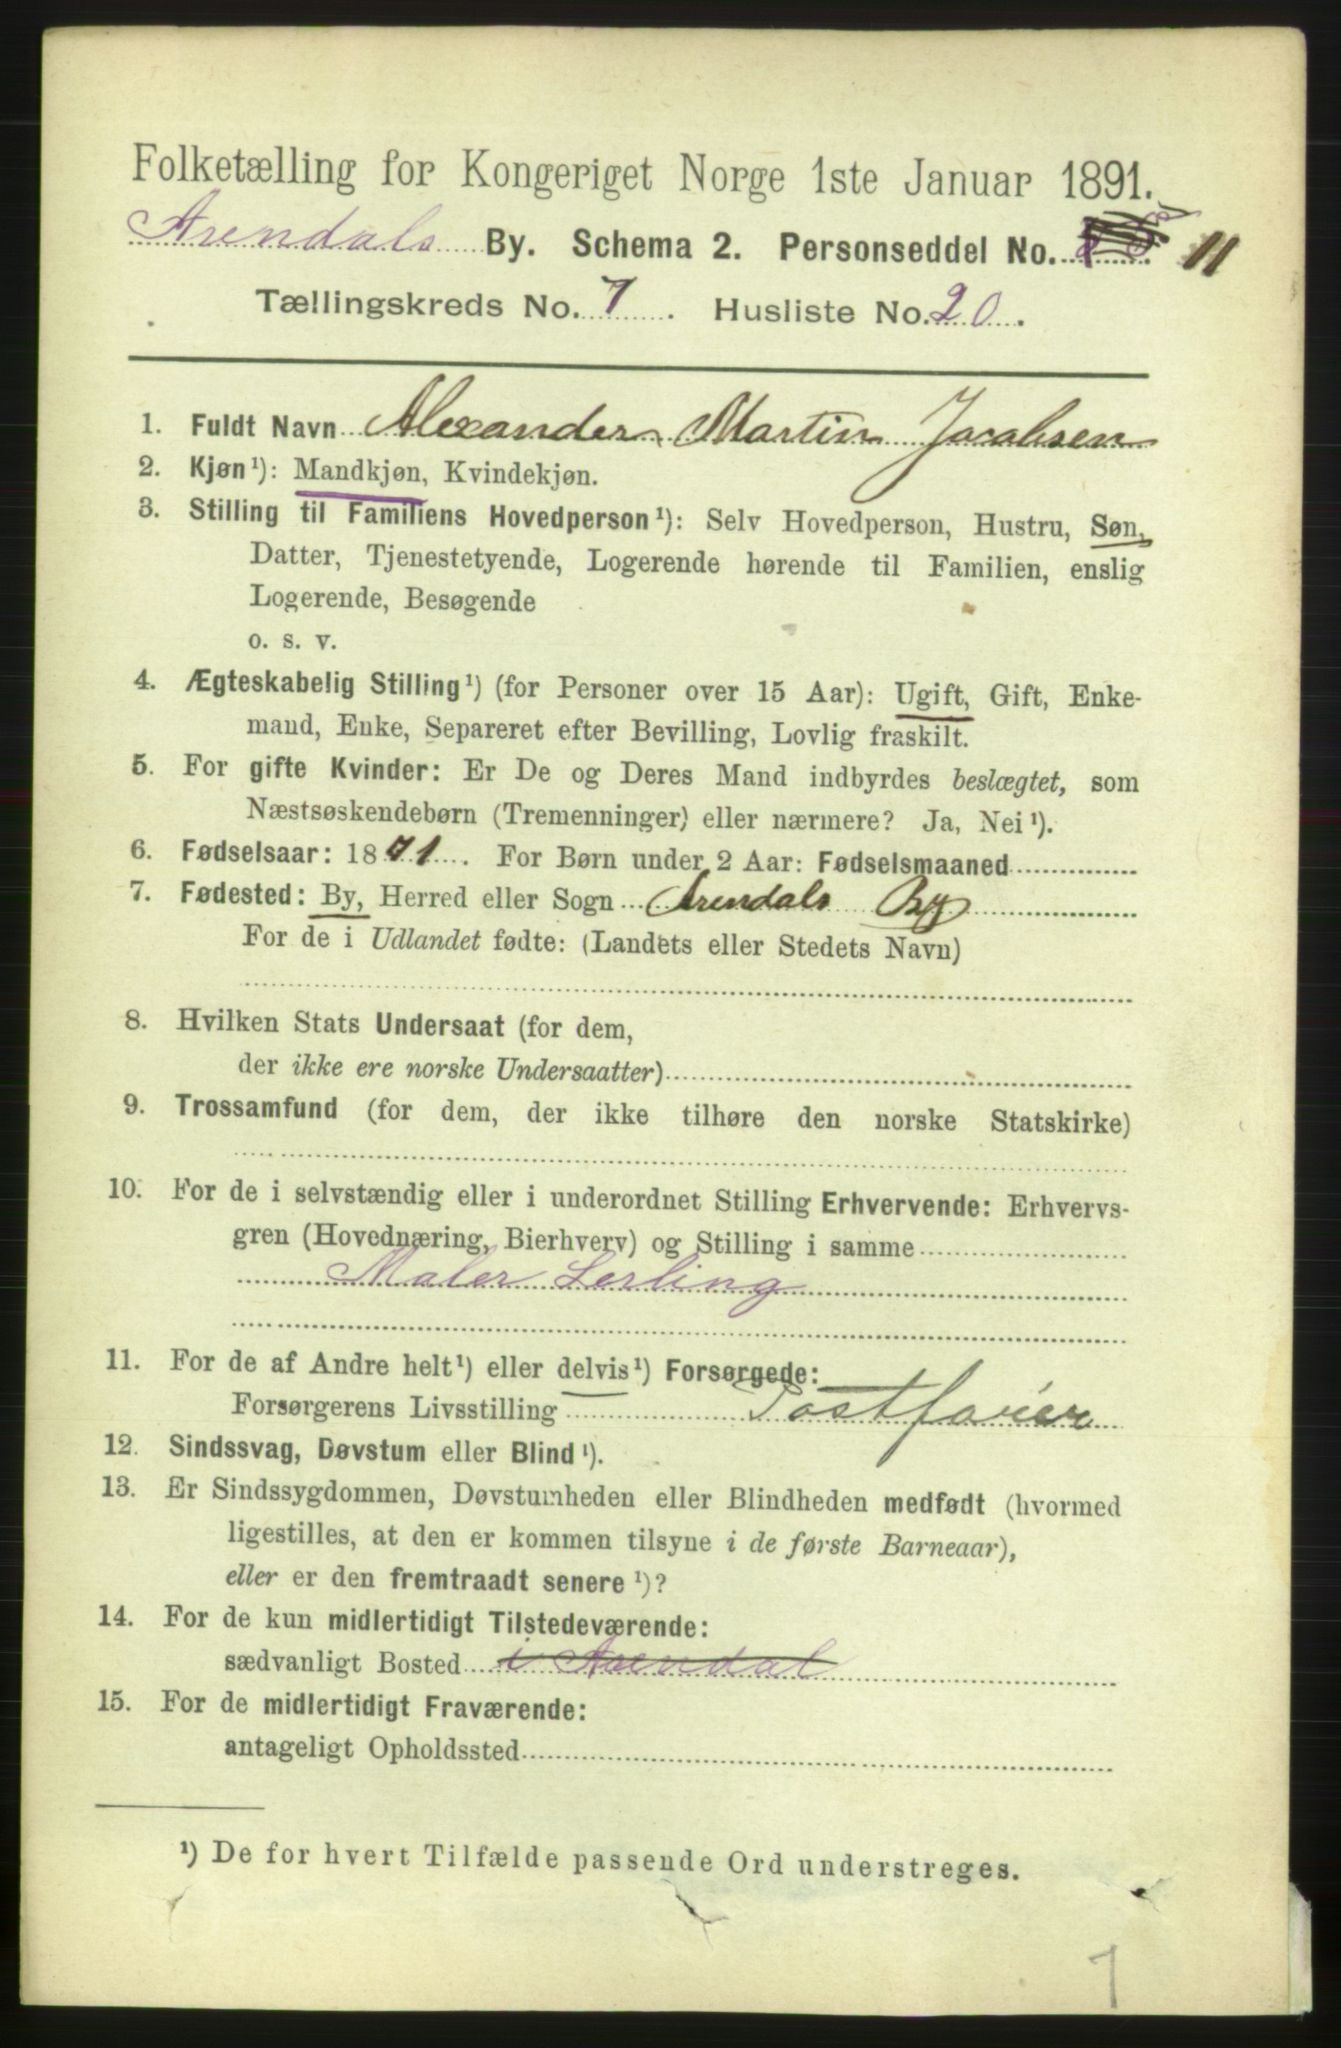 Folketælling for Kongeriget Norge 1ste Januar 1891.
Arendals By. Schema 2. Personseddel No. 11
Tællingskreds No. 7. Husliste No. 20.
1. Fuldt Navn Alexander Martin Jacobsen
2. Kjøn¹): Mandkjøn, Kvindekjøn.
3. Stilling til Familiens Hovedperson¹): Selv Hovedperson, Hustru, Søn,
Datter, Tjenestetyende, Logerende hørende til Familien, enslig
Logerende, Besøgende
o. s. v.
4. Ægteskabelig Stilling¹) (for Personer over 15 Aar): Ugift, Gift, Enke-
mand, Enke, Separeret efter Bevilling, Lovlig fraskilt.
5. For gifte Kvinder: Er De og Deres Mand indbyrdes beslægtet, som
Næstsøskendebørn (Tremenninger) eller nærmere? Ja, Nei¹).
6. Fødselsaar: 1871. For Børn under 2 Aar: Fødselsmaaned
7. Fødested: By, Herred eller Sogn Arendals By
For de i Udlandet fødte: (Landets eller Stedets Navn)
8. Hvilken Stats Undersaat (for dem,
der ikke ere norske Undersaatter)
9. Trossamfund (for dem, der ikke tilhøre den norske Statskirke)
10. For de i selvstændig eller i underordnet Stilling Erhvervende: Erhvervs-
gren (Hovednæring, Bierhverv) og Stilling i samme
Maler Lerling
11. For de af Andre helt¹) eller delvis¹) Forsørgede:
Forsørgerens Livsstilling Postførier
12. Sindssvag, Døvstum eller Blind¹).
13. Er Sindssygdommen, Døvstumheden eller Blindheden medfødt (hvormed
ligestilles, at den er kommen tilsyne i de første Barneaar),
eller er den fremtraadt senere¹)?
14. For de kun midlertidigt Tilstedeværende:
sædvanligt Bosted i Arendal
15. For de midlertidigt Fraværende:
antageligt Opholdssted
¹) De for hvert Tilfælde passende Ord understreges.
7